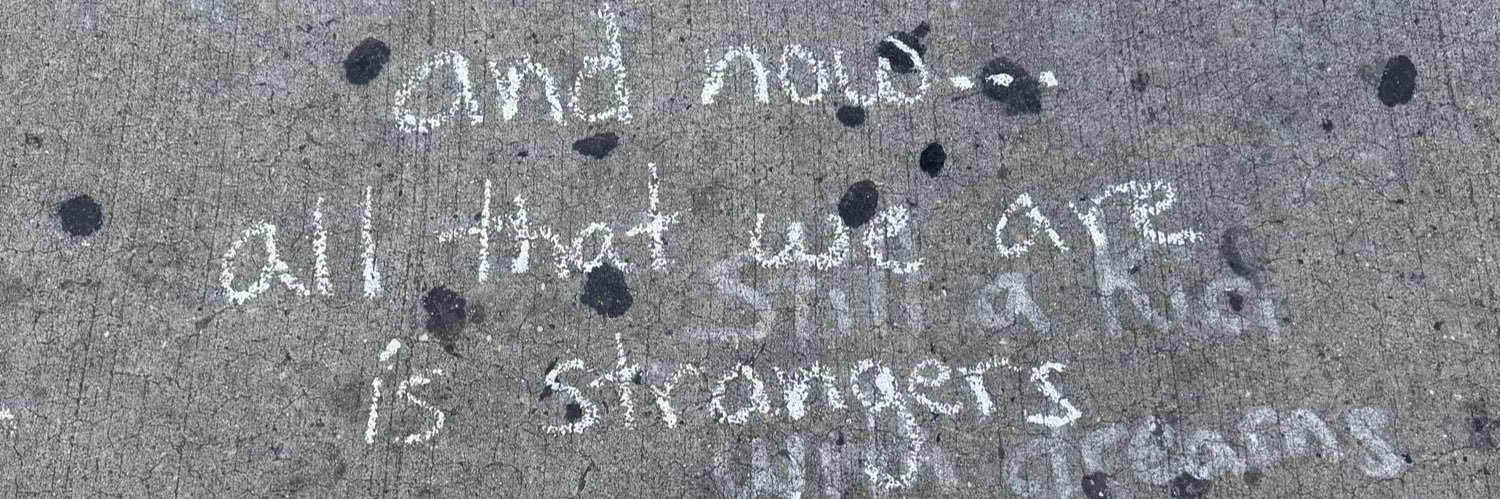 and now...
all that we are
Still a kid
is strangers
with dreams